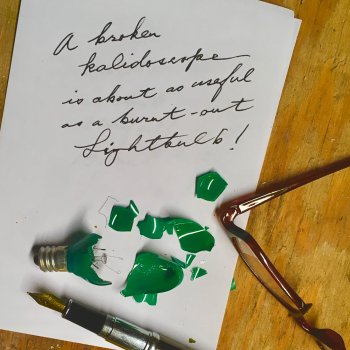 A broken
kalidoscope
is about as useful
as a burnt-out
Lightbulb!